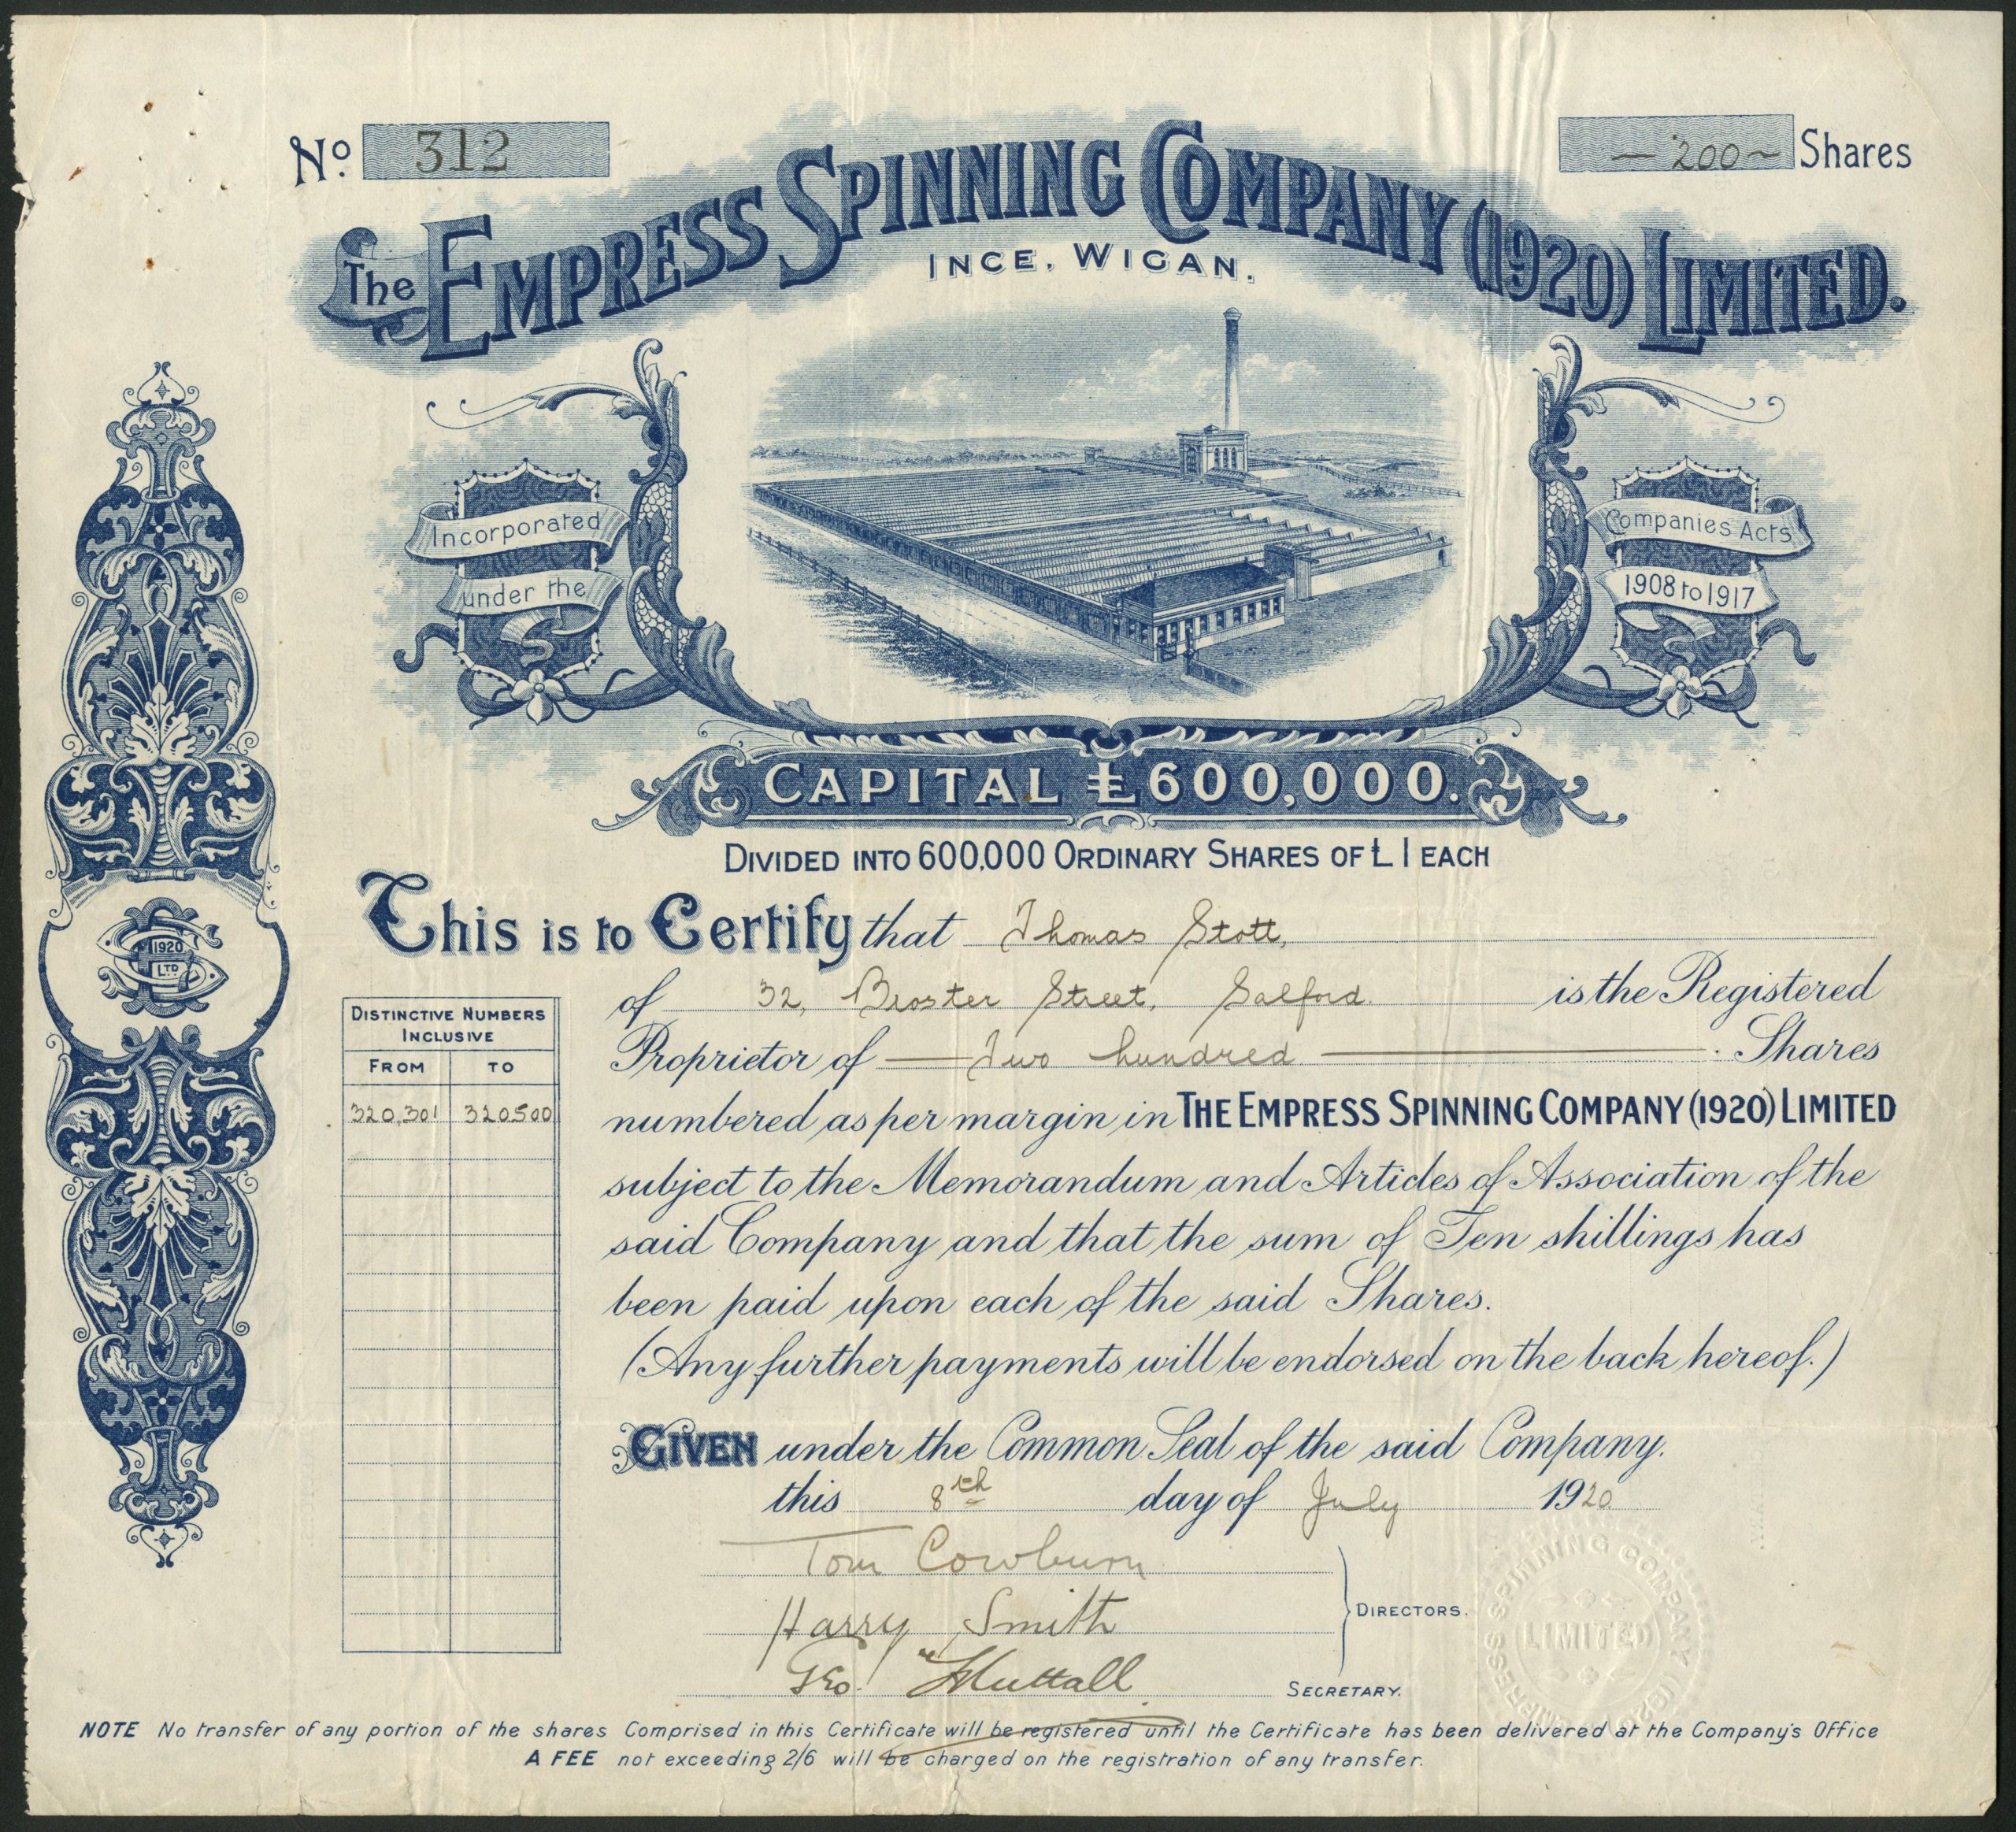 No. 312
— 200 ~ Shares
The EMPRESS SPINNING COMPANY (1920) LIMITED.
INCE, WIGAN.
Incorporated
under the
Companies Acts
1908 to 1917
CAPITAL £600,000.
DIVIDED INTO 600,000 ORDINARY SHARES OF £1 EACH
This is to Certify that Thomas Stott,
of 32, Broster Street, Salford. is the Registered
Proprietor of — Two hundred — Shares
numbered as per margin in THE EMPRESS SPINNING COMPANY (1920) LIMITED
subject to the Memorandum and Articles of Association of the
said Company and that the sum of Ten shillings has
been paid upon each of the said Shares.
(Any further payments will be endorsed on the back hereof.)
GIVEN under the Common Seal of the said Company.
this 8th day of July 1920
1920
LTD
DISTINCTIVE NUMBERS
INCLUSIVE
FROM TO
320,301 320500
Tom Cowburn
Harry Smith
DIRECTORS.
Geo. Nuttall
SECRETARY.
EMPRESS SPINNING COMPANY (1920)
LIMITED
NOTE No transfer of any portion of the shares Comprised in this Certificate will be registered until the Certificate has been delivered at the Company's Office
A FEE not exceeding 2/6 will be charged on the registration of any transfer.